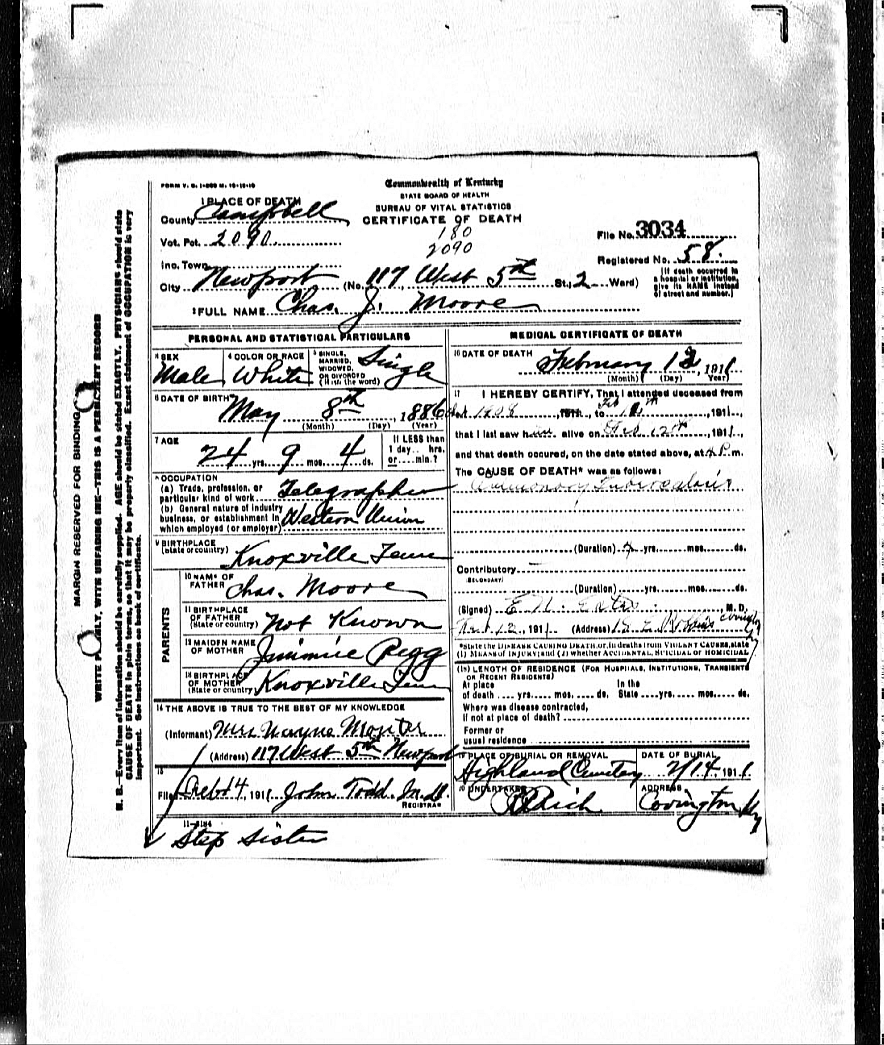 FORM V. S. 1-
Commonwealth of Kentucky
STATE BOARD OF HEALTH
BUREAU OF VITAL STATISTICS
CERTIFICATE OF DEATH
1 PLACE OF DEATH
County Campbell
Vot. Pct. 2090.
180
2090
File No. 3034
Registered No. 58.
Inc. Town
City Newport (No. 117 West 5th St., 2 Ward)
(If death occurred in a hospital or institution, give its NAME instead of street and number.)
2 FULL NAME Chas. J. Moore
PERSONAL AND STATISTICAL PARTICULARS
3 SEX Male
4 COLOR OR RACE White
5 SINGLE, MARRIED, WIDOWED, OR DIVORCED (Write the word) Single
6 DATE OF BIRTH May 8th 1886
(Month) (Day) (Year)
7 AGE 24 yrs. 9 mos. 4 ds.
If LESS than 1 day.. hrs. or.....min.?
8 OCCUPATION
(a) Trade, profession, or particular kind of work Telegrapher
(b) General nature of industry business, or establishment in which employed (or employer) Western Union
9 BIRTHPLACE (State or country) Knoxville Tenn
PARENTS
10 NAME OF FATHER Chas. Moore
11 BIRTHPLACE OF FATHER (State or country) Not Known
12 MAIDEN NAME OF MOTHER Jimmie Pegg
13 BIRTHPLACE OF MOTHER (State or country) Knoxville Tenn
14 THE ABOVE IS TRUE TO THE BEST OF MY KNOWLEDGE
(Informant) Mrs. Wayne
(Address) 117 West 5th Newport
15
Filed Feb 14, 1911 John Todd M.D.
REGISTRAR
11-3184
Step Sister
MEDICAL CERTIFICATE OF DEATH
16 DATE OF DEATH February 12, 1911
(Month) (Day) Year
17 I HEREBY CERTIFY, That I attended deceased from
1908, to Feb 1911,
that I last saw him alive on Feb 12th, 1911,
and that death occurred, on the date stated above, at 4 P.m.
The CAUSE OF DEATH* was as follows:
Pulmonary Tuberculosis
(Duration) yrs. mos. ds.
Contributory
(SECONDARY)
(Duration) yrs. mos. ds.
(Signed) E. N. M. D.
12, 1911 (Address) Covington
*State the DISEASE CAUSING DEATH, or, in deaths from VIOLENT CAUSES, state
(1) MEANS OF INJURY; and (2) whether ACCIDENTAL, SUICIDAL or HOMICIDAL
18 LENGTH OF RESIDENCE (FOR HOSPITALS, INSTITUTIONS, TRANSIENTS OR RECENT RESIDENTS)
At place of death .... yrs. mos. ds. In the State yrs. mos. ds.
Where was disease contracted, if not at place of death?
Former or usual residence
19 PLACE OF BURIAL OR REMOVAL Highland Cemetery
DATE OF BURIAL 2/14 1911
20 UNDERTAKER Rich
ADDRESS Covington Ky
MARGIN RESERVED FOR BINDING
WRITE PLAINLY, WITH UNFADING INK—THIS IS A PERMANENT RECORD
N. B.—Every item of information should be carefully supplied. AGE should be stated EXACTLY. PHYSICIANS should state
CAUSE OF DEATH in plain terms, so that it may be properly classified. Exact statement of OCCUPATION is very
important. See instructions on back of certificate.